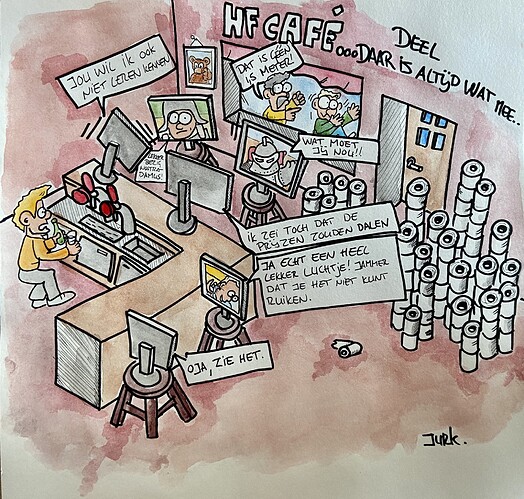 HF CAFÉ
DEEL
oooDAAR iS ALTijD WAT MEE..
JOU WIL iK OOK
NiET LEREN KENNEN
DAT iS GÉÉN
METER!
WAT MOET
JIJ NOU!!
LEKKER
BEZIG
NOSTRA-
DAMUS!
iK ZEI TOCH DAT DE
PRIJZEN ZOUDEN DALEN
JA ECHT EEN HEEL
LEKKER LUCHTJE! JAMMER
DAT JE HET NIET KUNT
RUIKEN.
OJA, ZIE HET.
JURK.